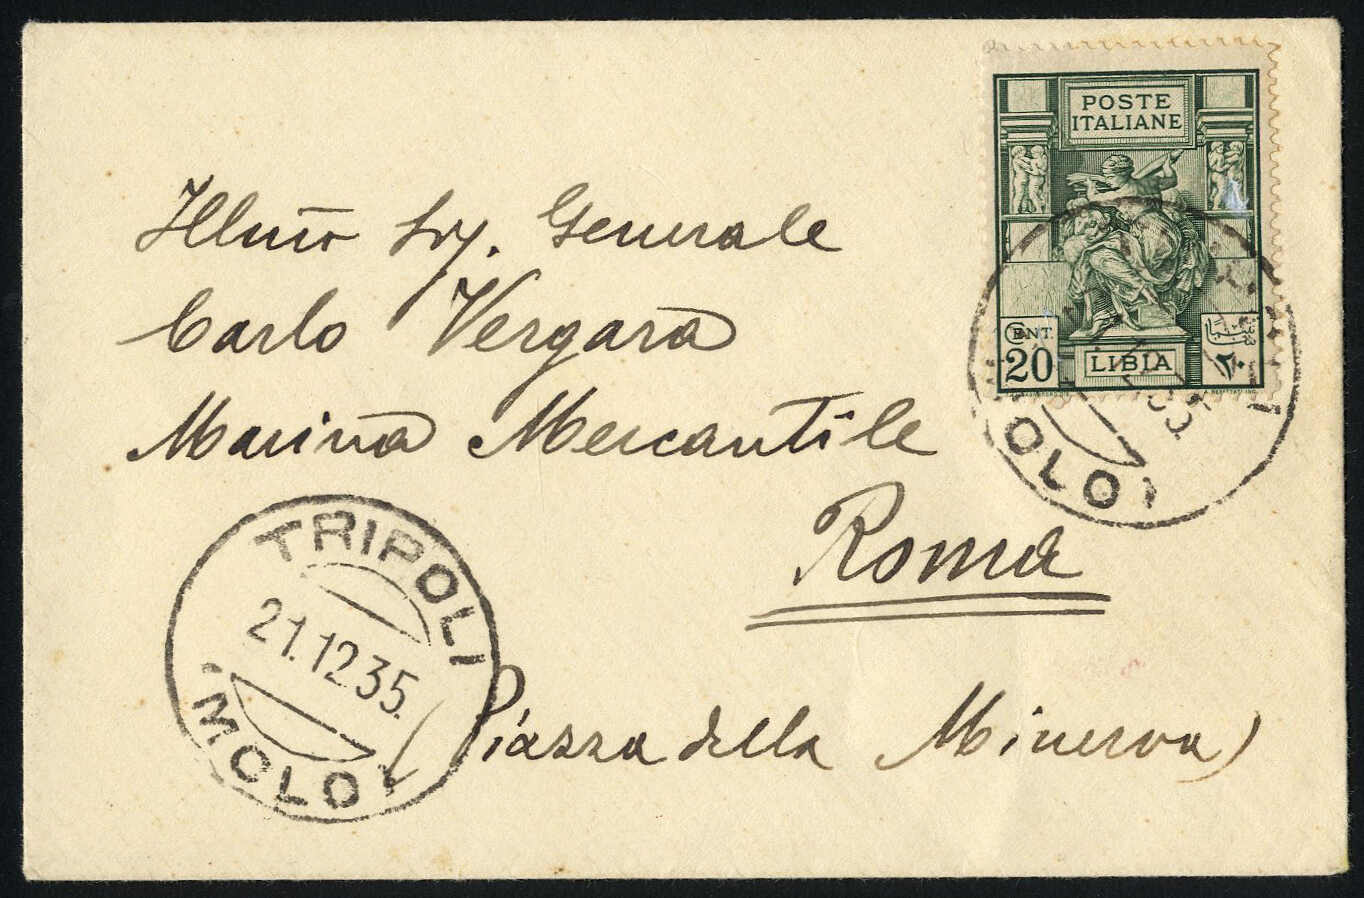 POSTE
ITALIANE
CENT.
20
LIBIA
٢٠
OLO
Illmo Sig. Generale
Carlo Vergara
Marina Mercantile
Roma
(Piazza della Minerva)
TRIPOLI
21.12.35.
MOLO